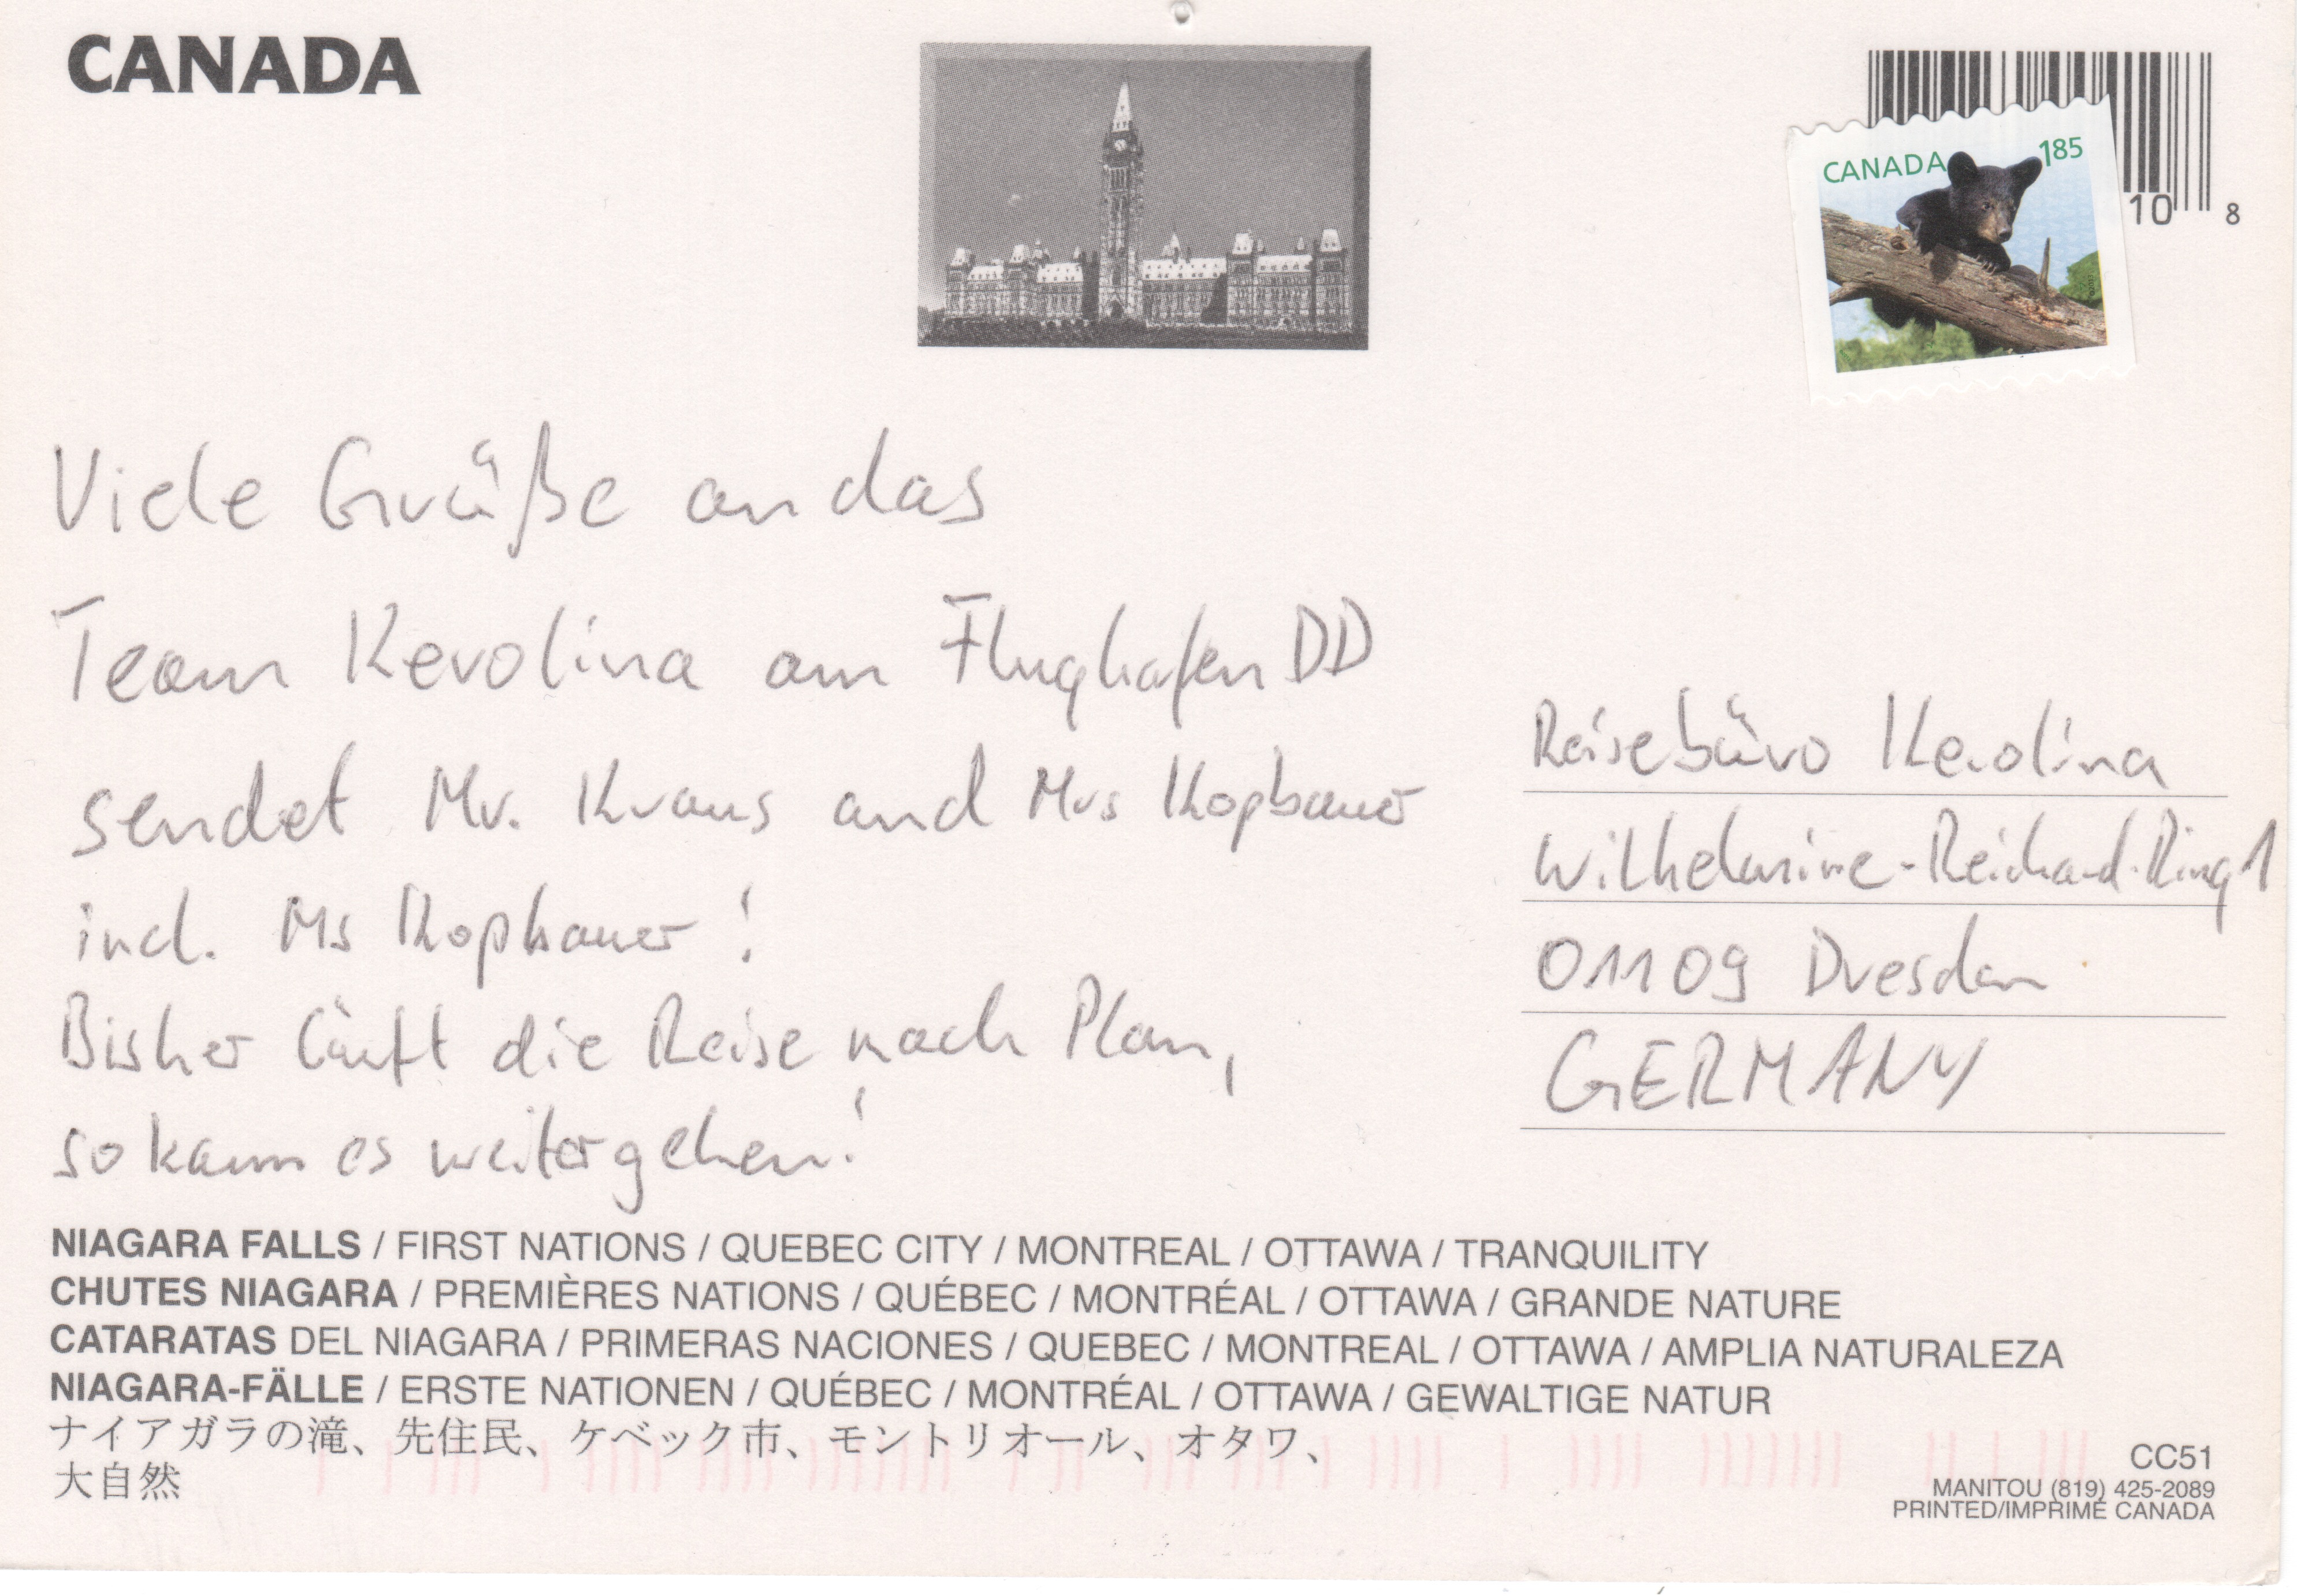 CANADA
CANADA 185
10 8
Viele Grüße an das
Team Kerolina am Flughafen DD
sendet Mr. Kraus and Mrs Kopbauer
incl. Ms Kopbauer!
Bisher läuft die Reise nach Plan,
so kann es weitergehen!
Reisebüro Kerolina
Wilhelmine-Reichard-Ring 1
01109 Dresden
GERMANY
NIAGARA FALLS / FIRST NATIONS / QUEBEC CITY / MONTREAL / OTTAWA / TRANQUILITY
CHUTES NIAGARA / PREMIÈRES NATIONS / QUÉBEC / MONTRÉAL / OTTAWA / GRANDE NATURE
CATARATAS DEL NIAGARA / PRIMERAS NACIONES / QUEBEC / MONTREAL / OTTAWA / AMPLIA NATURALEZA
NIAGARA-FÄLLE / ERSTE NATIONEN / QUÉBEC / MONTRÉAL / OTTAWA / GEWALTIGE NATUR
ナイアガラの滝、先住民、ケベック市、モントリオール、オタワ、
大自然
CC51
MANITOU (819) 425-2089
PRINTED/IMPRIMÉ CANADA